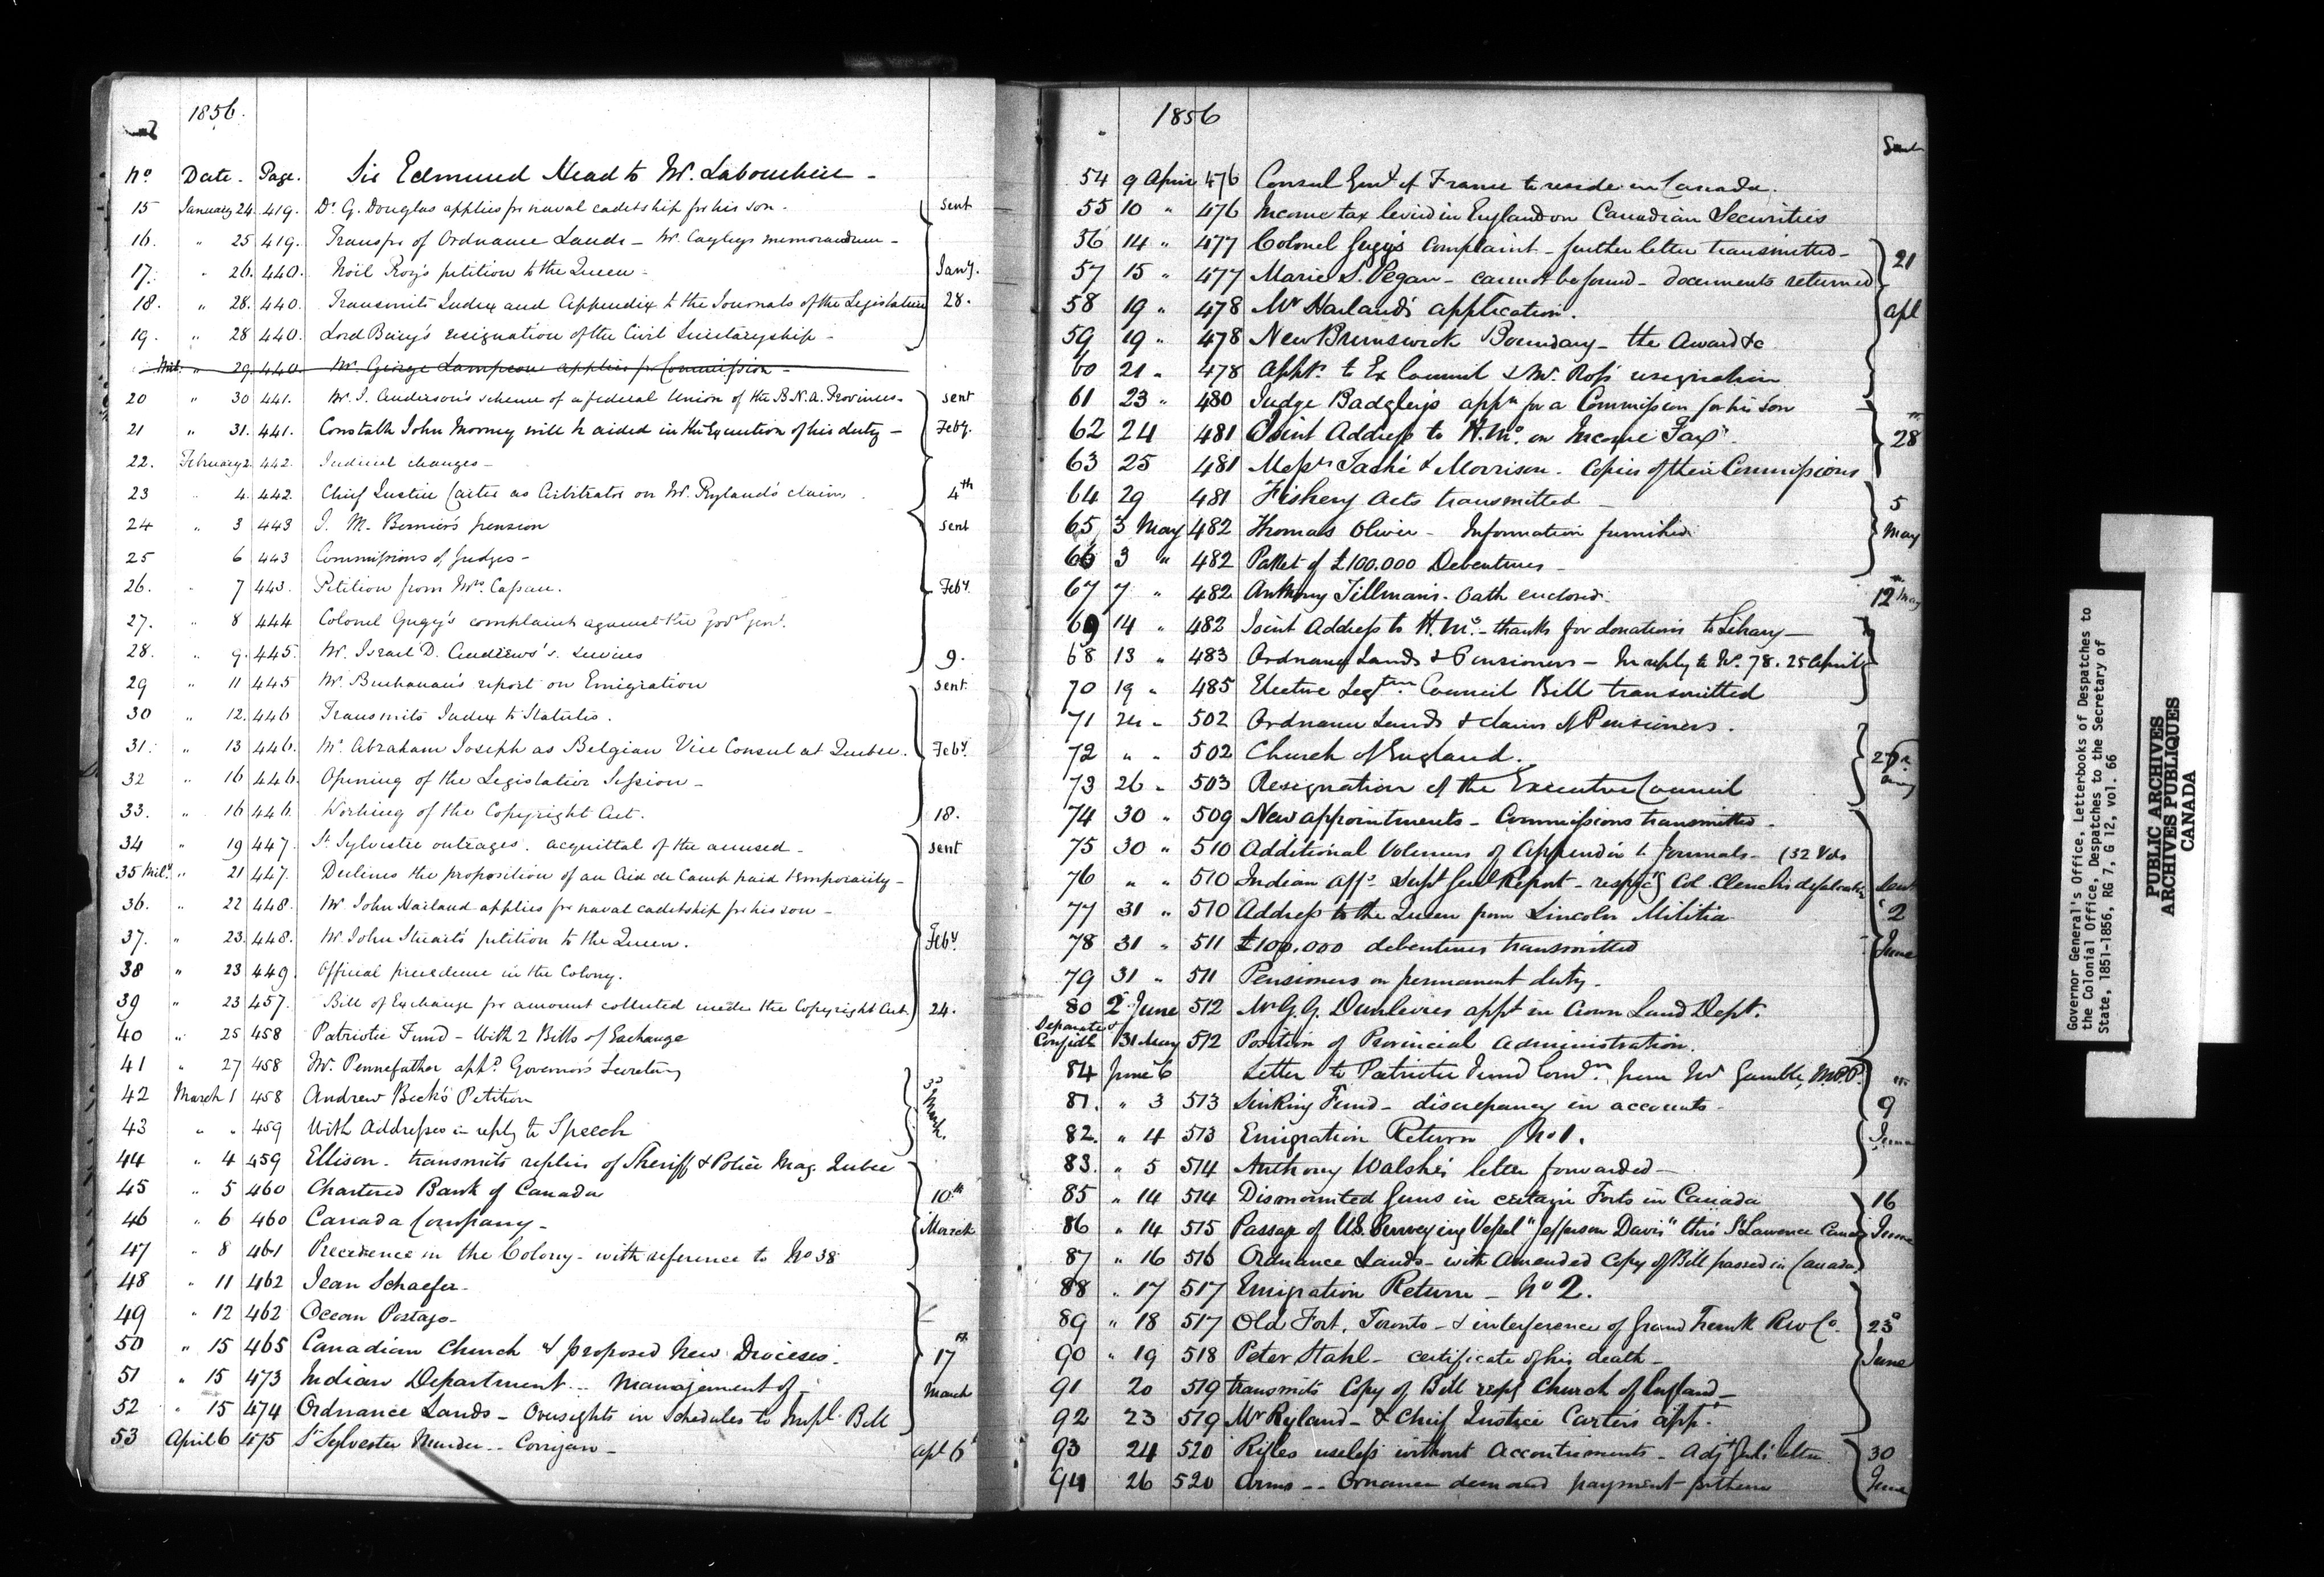 1856.
No Date. Page. Sir Edmund Head to Mr. Labouchere -
15 January 24. 419. Dr. G. Douglas applies for naval cadetship for his son. sent
16. " 25 419. Transfer of Ordnance Lands - Mr. Cayley's memorandum -
17. " 26. 440. Noël Roy's petition to the Queen - Jany.
18. " 28. 440. Transmits Index and Appendix to the Journals of the Legislature 28.
19. " 28 440. Lord Bury's resignation of the Civil Secretaryship -
Mil: " 29. 440. Mr. George Lampson applies for Commission -
20 " 30 441. Mr. J. Anderson's scheme of a federal Union of the B.N.A. Provinces - sent
21 " 31. 441. Constable John Morney will be aided in the Execution of his duty - Feby.
22. February 2. 442. Judicial changes -
23 " 4. 442. Chief Justice Carter as Arbitrator on Mr. Ryland's claim. 4th
24 " 3 443 J. M. Bernier's pension sent
25 6 443 Commissions of Judges -
26. " 7 443. Petition from Mrs. Feby.
27. " 8 444 Colonel Gugy's complaint against the Govr. Genl.
28. " 9. 445. Mr. Israel D. Andrews's services 9.
29 " 11 445 Mr. Buchanan's report on Emigration sent.
30 " 12. 446 Transmits Index to Statutes.
31. " 13 446. Mr. Abraham Joseph as Belgian Vice Consul at Quebec. Feby.
32 " 16 446. Opening of the Legislative Session -
33. " 16 446. Working of the Copyright Act. 18.
34 " 19 447. St. Sylvestre outrages. acquittal of the accused - sent
35 Mily. " 21 447. Declines the proposition of an Aid de Camp paid temporarily -
36. " 22 448. Mr John Harland applies for naval cadetship for his son -
37. " 23. 448. Mr. John Stuart's petition to the Queen. Feby.
38 " 23 449. Official precedence in the Colony.
39 " 23 457. Bill of Exchange for amount collected under the Copyright Act. 24.
40 " 25 458 Patriotic Fund - With 2 Bills of Exchange
41 " 27 458 Mr. Pennefather appd. Governor's Secretary
42 March 1 458 Andrew Beck's Petition 3d March.
43 " " 459 With Addresses in reply to Speech
44 " 4 459 Ellison - transmits replies of Sheriff & Police Mag. Quebec
45 " 5 460 Chartered Bank of Canada 10th
46 " 6 460 Canada Company - March
47 " 8 461 Precedence in the Colony - with reference to No 38
48 " 11 462 Jean Schaefer -
49 " 12 462 Ocean Postage -
50 " 15 465 Canadian Church & proposed New Dioceses. 17
51 " 15 473 Indian Department - Management of - March
52 " 15 474 Ordnance Lands - Oversights in Schedules to Impl. Bill
53 April 6 475 St Sylvester Murder - Corrigan - apl 6
1856
Sent
54 9 April 476 Consul Genl. of France to reside in Canada.
55 10 " 476 Income tax levied in England on Canadian Securities
56 14 " 477 Colonel Gugy's Complaint - further letter transmitted - 21
57 15 " 477 Marie S. Pegan - cannot be found - documents returned
58 19 " 478 Mr Harland's application. apl
59 19 " 478 New Brunswick Boundary - the Award &c
60 21 " 478 Appt. to Ex Council & Mr. Ross' resignation
61 23 " 480 Judge Badgley's appn for a Commission for his Son
62 24 481 Joint Address to H.M. on Income Tax. 28
63 25 481 Messrs Taché & Morrison. Copies of their Commissions
64 29 481 Fishery Acts transmitted - 5
65 3 May 482 Thomas Oliver - Information furnished May
66 3 " 482 Packet of £100.000 Debentures -
67 7 " 482 Anthony Tillmans. Oath enclosed. 12 May
69 14 " 482 Joint Address to H.M. - thanks for donations to Library -
68 13 " 483 Ordnance Lands & Pensioners - In reply to No. 78. 25 April
70 19 " 485 Elective Legtve. Council Bill transmitted
71 24 " 502 Ordnance Lands & claims of Pensioners.
72 " " 502 Church of England.
73 26 " 503 Resignation of the Executive Council
74 30 " 509 New appointments - Commissions transmitted -
75 30 " 510 Additional Volumes of Appendix to Journals - (32 Vols
76 " " 510 Indian Affs. Supt Genl Report - respectg Col. Clench's defalcation Sent
77 31 " 510 Address to the Queen from Lincoln Militia 2
78 31 " 511 £100.000 debentures transmitted June
79 31 " 511 Pensioners on permanent duty -
80 2 June 512 Mr G.G. Dunlevie's appt in Crown Land Dept.
Separate & Confidl. 31 May 512 Position of Provincial Administration.
84 June 6 Letter to Patriotic Fund Comrs. from Mr Gamble, M.P.P.
81. " 3 513 Sinking Fund - discrepancy in accounts - 9
82. " 4 513 Emigration Return No 1. June
83. " 5 514 Anthony Walshe's letter forwarded -
85 " 14 514 Dismounted Guns in certain Forts in Canada 16
86 " 14 515 Passage of U.S. Surveying Vessel "Jefferson Davis" thro' St Lawrence Canals June
87 " 16 516 Ordnance Lands - with Amended Copy of Bill passed in Canada
88 " 17 517 Emigration Return - No 2.
89 " 18 517 Old Fort, Toronto - & interference of Grand Trunk Rw Co. 23d
90 " 19 518 Peter Stahl - certificate of his death - June
91 20 519 transmits Copy of Bill respg Church of England -
92 23 519 Mr Ryland - & Chief Justice Carter's appt.
93 24 520 Rifles useless without Accoutrements - Adjt Genl's letter 30
94 26 520 Arms - Ornance demand payment for them June
Governor General's Office, Letterbooks of Despatches to
the Colonial Office, Despatches to the Secretary of
State, 1851-1856, RG 7, G 12, vol. 66
PUBLIC ARCHIVES
ARCHIVES PUBLIQUES
CANADA